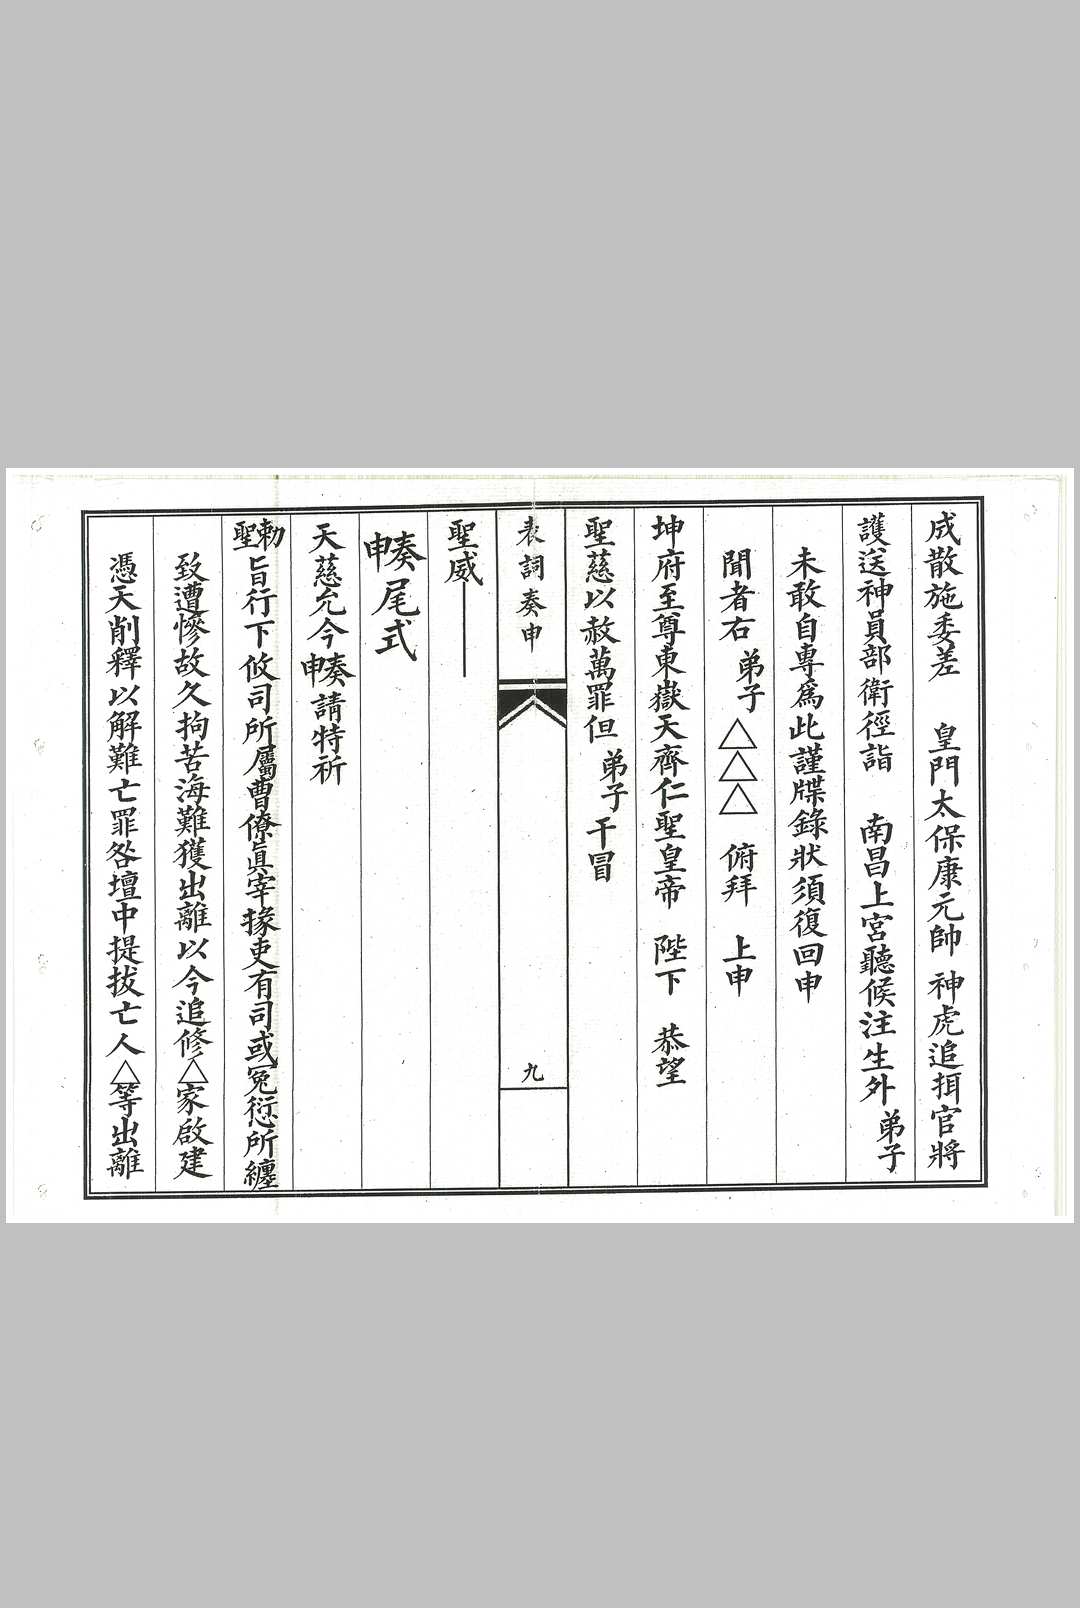 成散施委差　皇門太保康元帥 神虎追揖官將
護送神員部衛徑詣　南昌上宮聽候注生外弟子
未敢自專爲此謹牒錄狀須復回申
聞者右弟子△△△　俯拜　上申
坤府至尊東嶽天齊仁聖皇帝　陛下　恭望
聖慈以赦萬罪但弟子干冒
表詞奏申
九
聖威——
申奏尾式
天慈允今申奏請特祈
聖勅旨行下攸司所屬曹僚眞宰掾吏有司或冤愆所纏
致遭慘故久拘苦海難獲出離以今追修△家啟建
憑天削釋以解難亡罪咎壇中提拔亡人△等出離